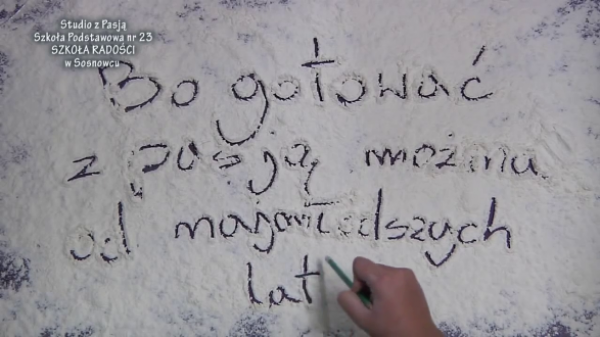 Studio z Pasją
Szkoła Podstawowa nr 23
SZKOŁA RADOŚCI
w Sosnowcu
Bo gotować
z pasją można
od najmłodszych
lat